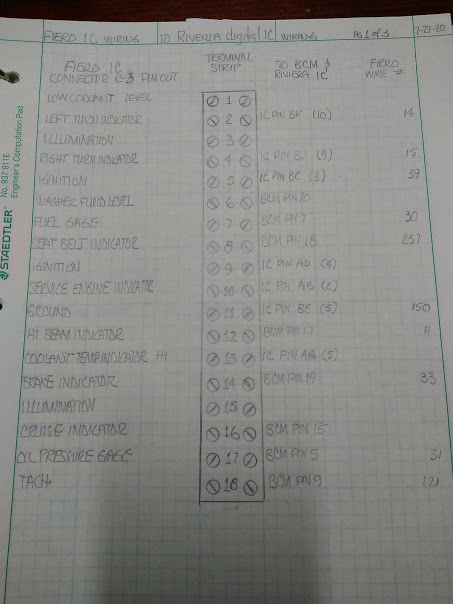 FIERO IC WIRING TO RIVERIA digital IC WIRING PG 1 of 3 7-21-20
FIERO IC CONNECTOR C-3 PIN OUT TERMINAL STRIP TO BCM & RIVIERA IC FIERO WIRE #
LOW COOLANT LEVEL 1
LEFT TURN INDICATOR 2 IC PIN BK (10) 14
ILLUMINATION 3
RIGHT TURN INDICATOR 4 IC PIN BJ (9) 15
IGNITION 5 IC PIN BC (3) 39
WASHER FLUID LEVEL 6 BCM PIN 20
FUEL GAGE 7 BCM PIN 7 30
SEAT BELT INDICATOR 8 BCM PIN 18 237
IGNITION 9 IC PIN AD (4)
SERVICE ENGINE INDICATOR 10 IC PIN AB (2)
GROUND 11 IC PIN BE (5) 150
HI BEAM INDICATOR 12 BCM PIN 17 11
COOLANT TEMP INDICATOR HI 13 IC PIN (5)
BRAKE INDICATOR 14 BCM PIN 19 33
ILLUMINATION 15
CRUISE INDICATOR 16 BCM PIN 16
OIL PRESSURE GAGE 17 BCM PIN 5 31
TACH 18 BCM PIN 9 121
STAEDTLER No. 937 811E
Engineer's Computation Pad